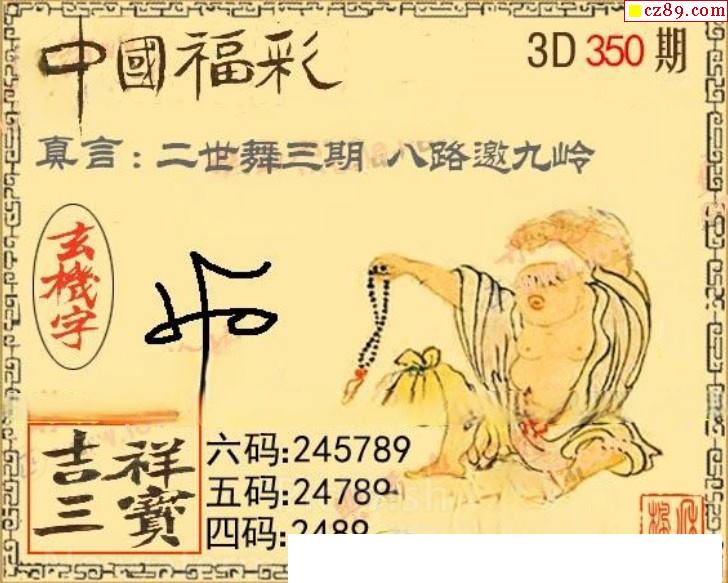 cz89.com
中國福彩
3D 350 期
真言: 二世舞三期 八路邀九岭
玄機字
吉祥三寳
六码:245789
五码:24789
四码:2489